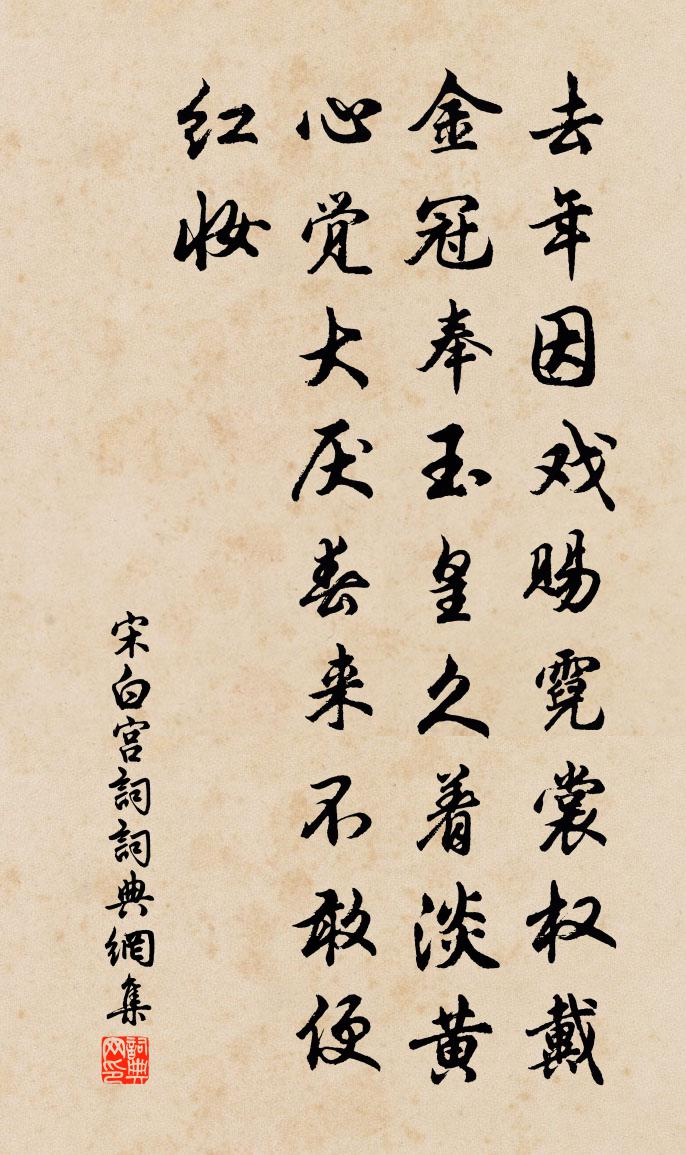 去年因戏赐霓裳权戴
金冠奉玉皇久着淡黄
心觉大厌春来不敢便
红妆
宋白宫詞詞典網集
詞典网印